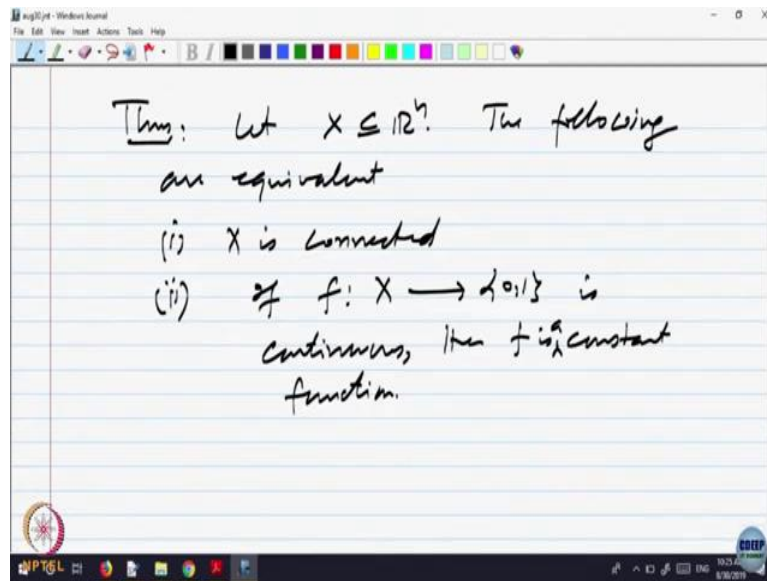 aug30.jnt - Windows Journal
File Edit View Insert Actions Tools Help
B I
Thm: Let X ⊆ ℝⁿ. The following
are equivalent
(i) X is connected
(ii) If f: X → {0,1} is
continuous, then f is a constant
function.
NPTEL
CDEEP
ENG
8/30/2019